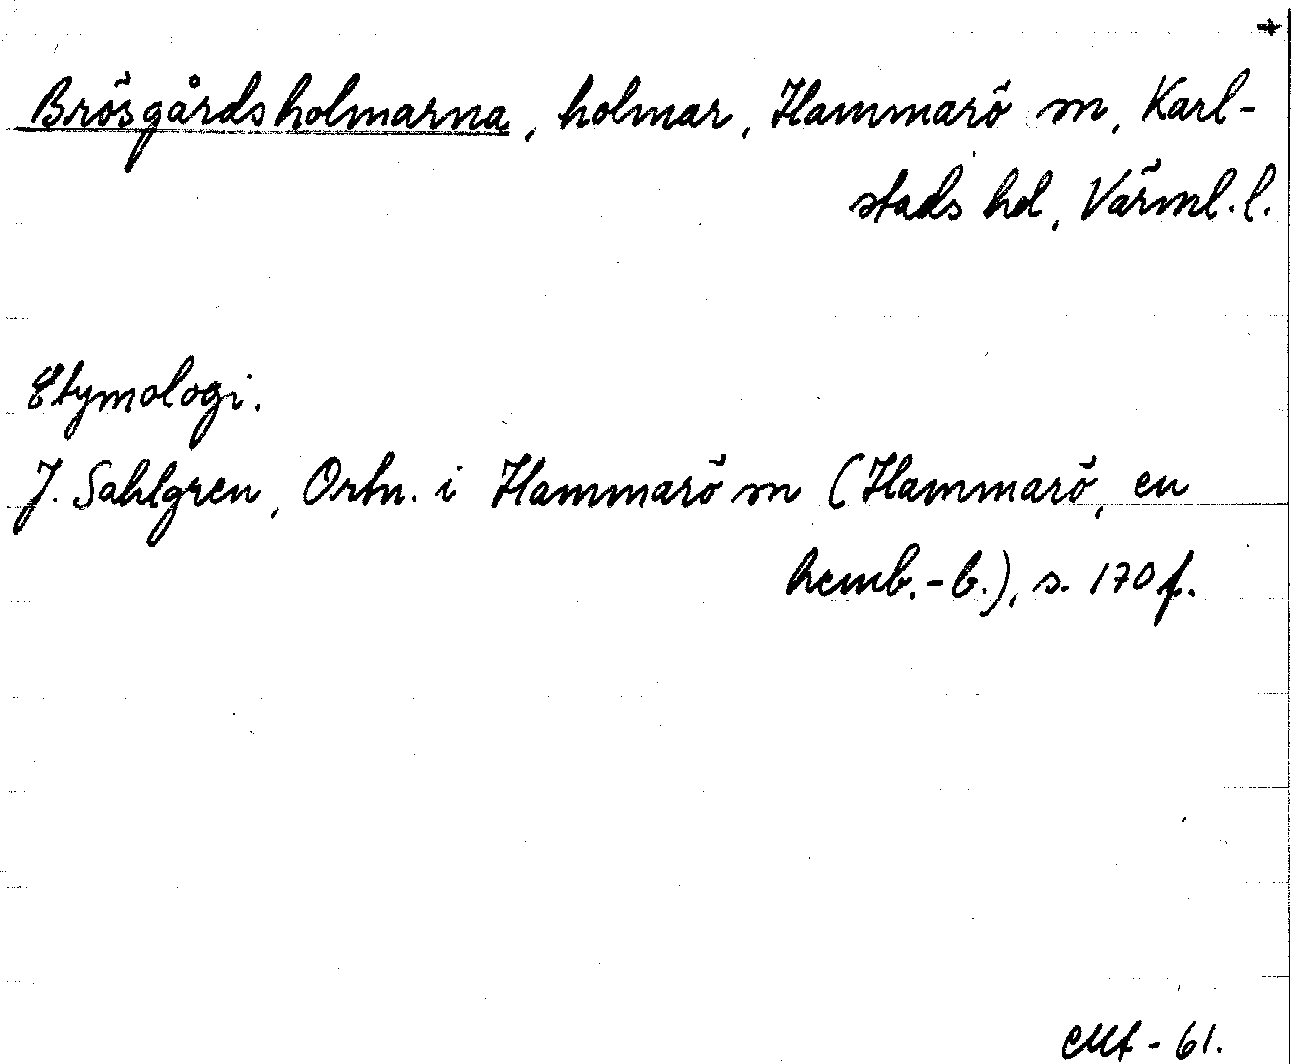 +
Brösgårdsholmarna, holmar, Hammarö sn, Karl-
stads hd, Värml. l.
Etymologi.
J. Sahlgren, Ortn. i Hammarö sn (Hammarö, en
hemb.-b.), s. 170 f.
- 61.